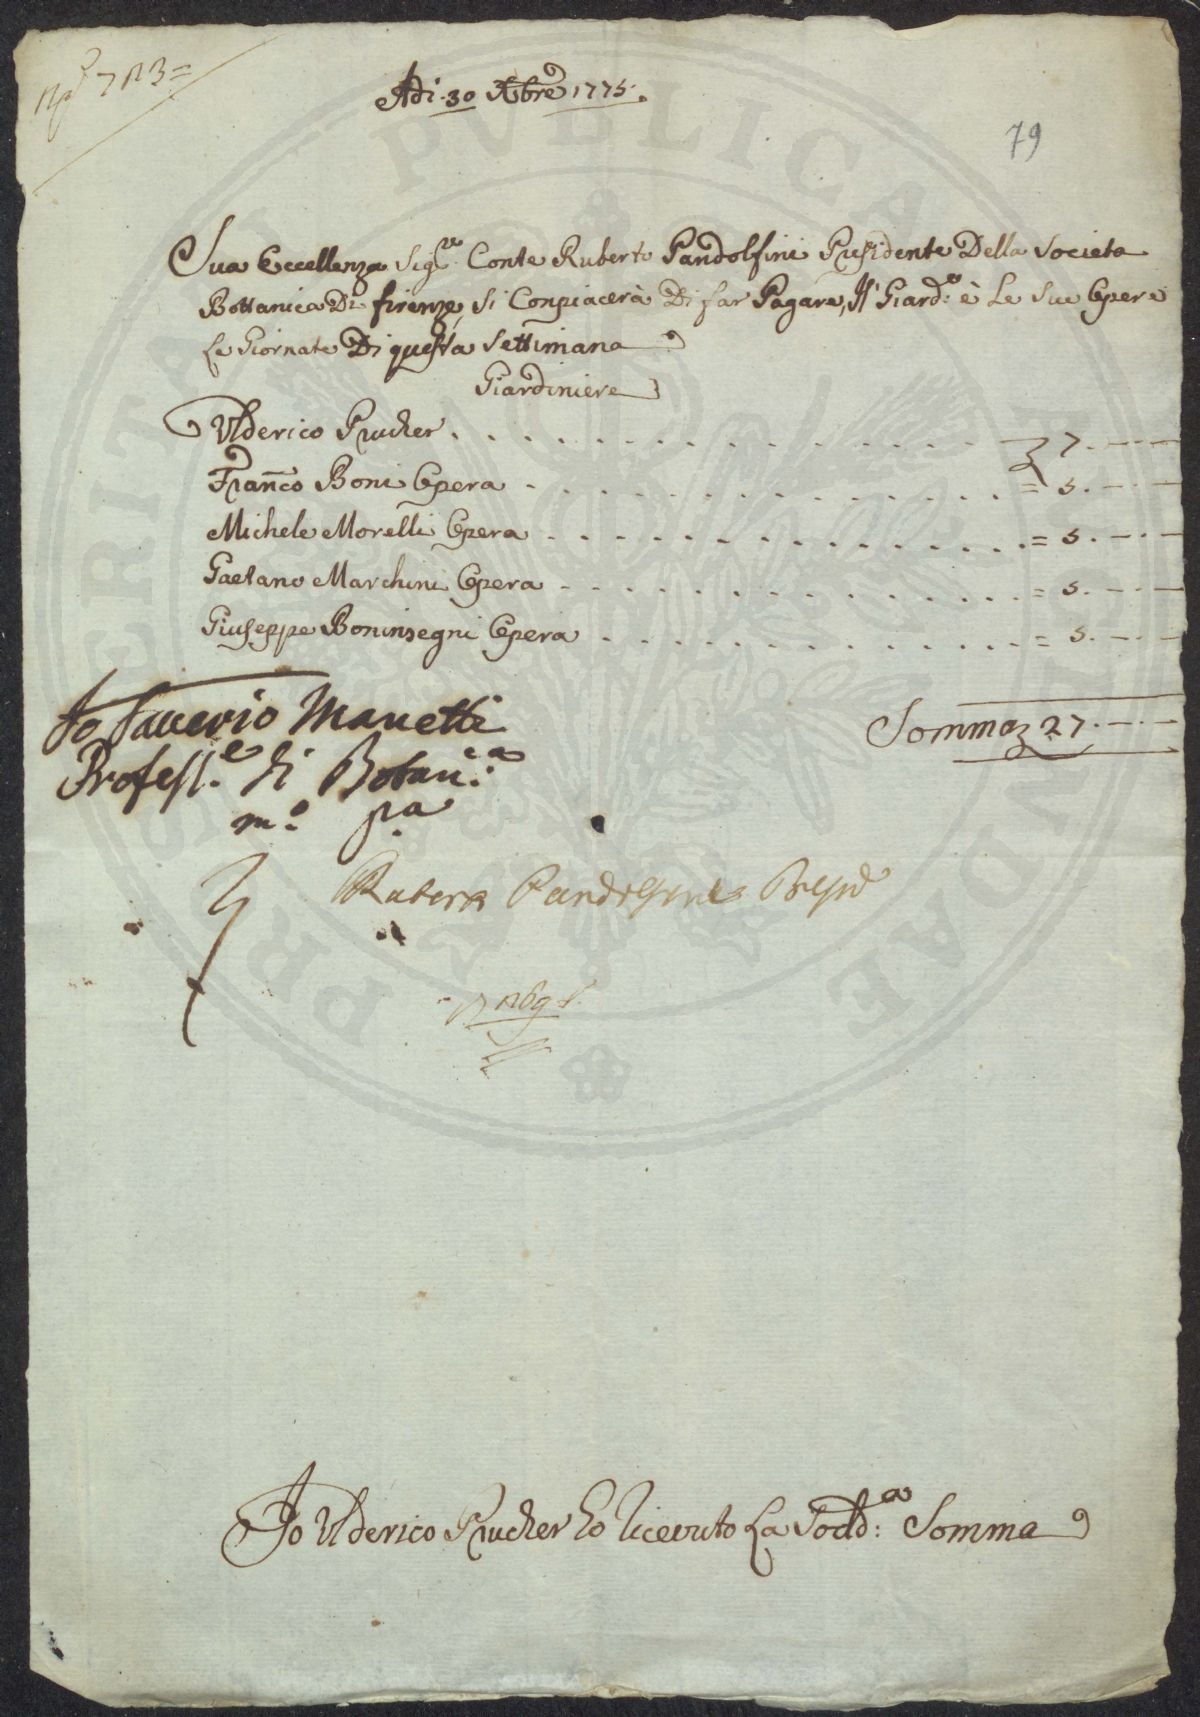 Adì. 30 Xbre 1775.
79
Sua Eccellenza Sigre. Conte Ruberto Pandolfini Presidente Della Societa
Bottanica Di firenze, Si Conpiacerà Di far Pagare, Il Giard:e è Le Sue Opere
Le Giornate Di questa Settimana
Giardiniere
Ulderico Prucher . . . . . . . . . . . . . . 7. — . —
Franco Boni Opera . . . . . . . . . . . . . = 5. — . —
Michele Morelli Opera . . . . . . . . . . . . = 5. — . —
Gaetano Marchini Opera . . . . . . . . . . . = 5. — . —
Giuseppe Boninsegni Opera . . . . . . . . . . = 5. — . —
Somma 27. — . —
Io Saverio Manetti
Profess.e di Botan:ca
mo. pa
Ruberto Pandolfini Presid
Io Ulderico Prucher ho Riceuto La Sodd:a Somma
PRAESIDIUM
PVBLICAE